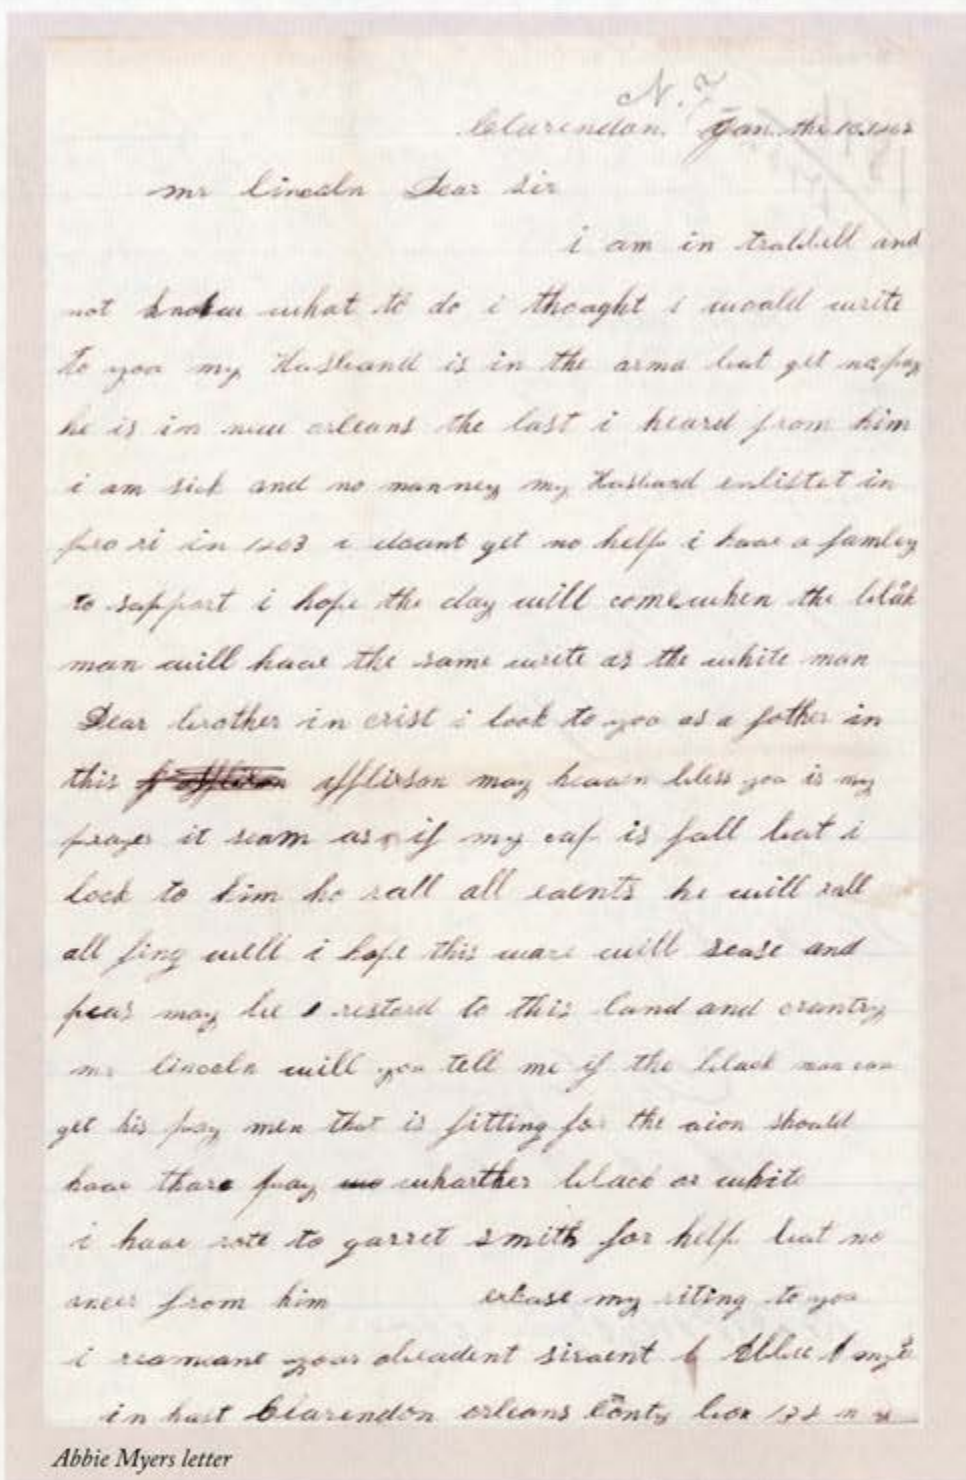 N.
Clarendon. Jan. the
mr lincoln Dear Sir
i am in trabbell and
not know what to do i thoaght i woald write
to yoa my Hasband is in the arma bat get no pay
he is in new orleans the last i heard from him
i am sick and no manney my Hasband enlistet in
in 1863 i daant get no help i have a famley
to sapport i hope the day will come when the blak
man will have the same write as the white man
Dear brother in crist i look to yoa as a father in
this afflixson may heaven bless yoa is my
prayer it seam as if my cap is fall bat i
look to him ho rall all events he will rall
all fing well i hope this ware will sease and
peas may be restord to this land and
mr lincoln will yoa tell me if the black man can
get his pay men that is fitting for the should
have thare pay wharther black or white
i have rote to garret smith for help bat no
from him my riting to yoa
i yoar obeadent sirvent
in Clarendon orleans box
Abbie Myers letter